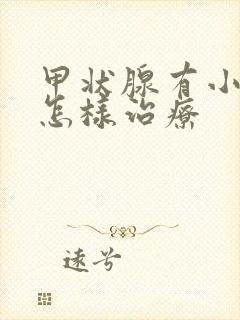 甲状腺有小
怎样治疗
远兮